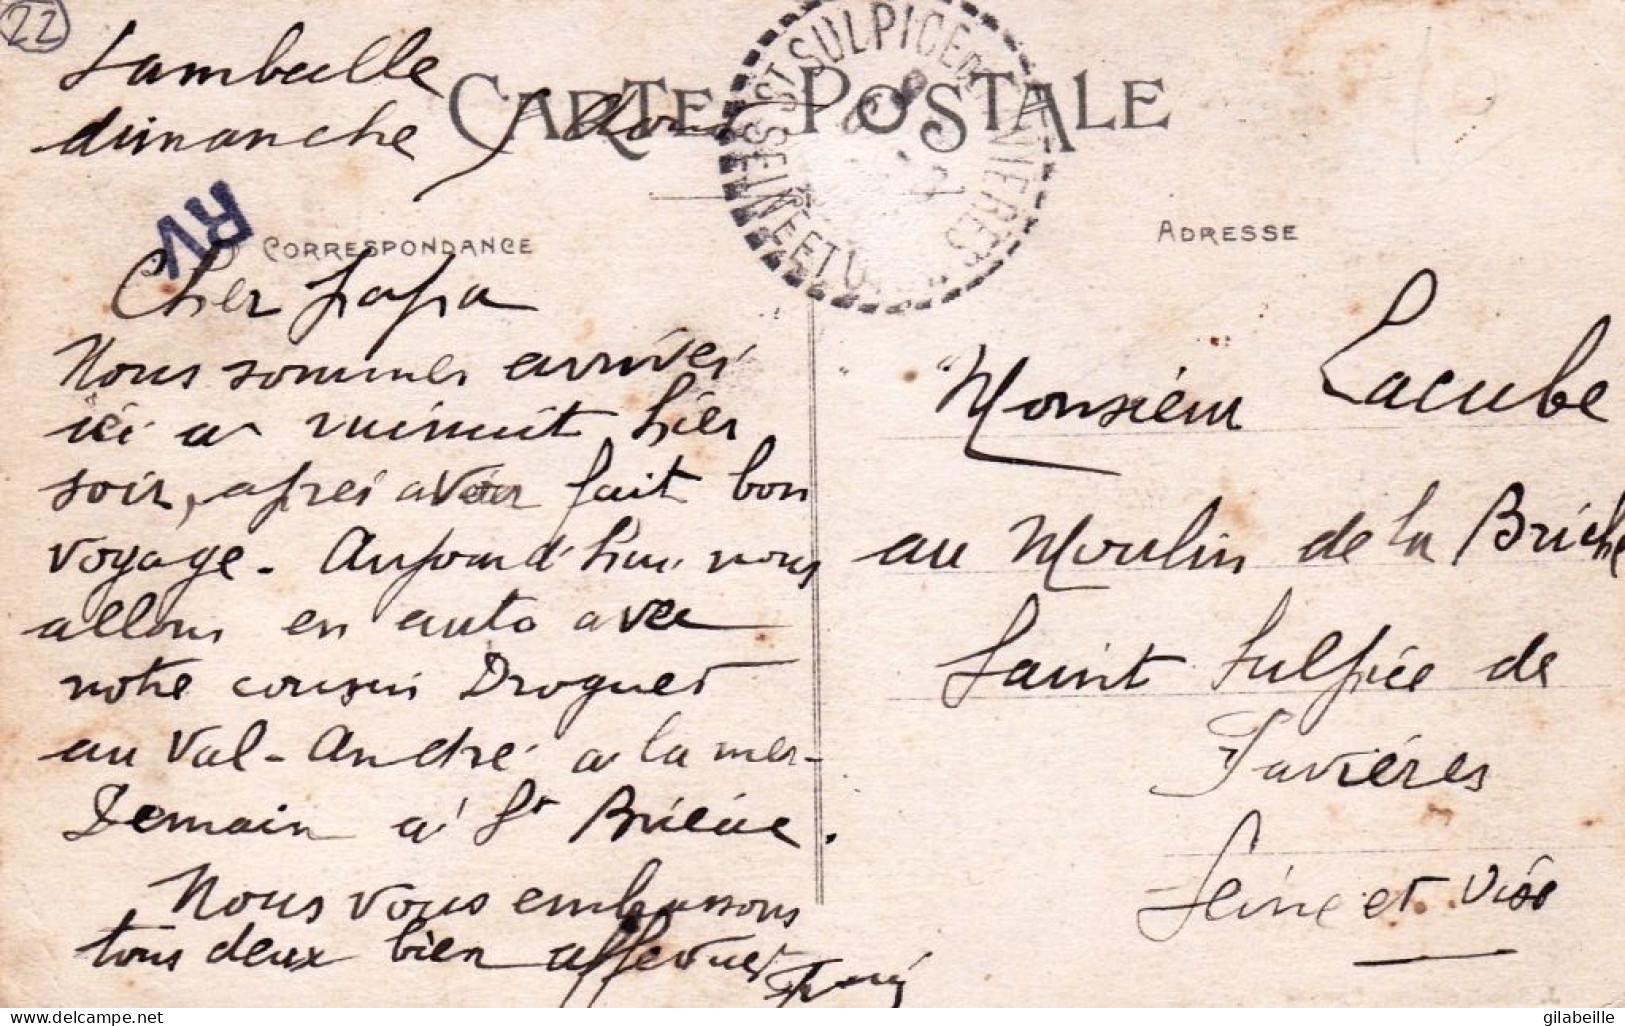 22
Lamballe
dimanche Août
CARTE POSTALE
ST SULPICE DE FAVIERES
SEINE ET O
RV
CORRESPONDANCE
ADRESSE
Cher papa
Nous sommes arrivés
ici a minuit hier
soir, après avoir fait bon
voyage - Aujourd'hui nous
allons en auto avec
notre cousin Droguet
au Val-André a la mer -
Demain a St Brieuc.
Nous vous embrassons
tous deux bien affectuet
Monsieur Lacube
au Moulin de la Briche
Saint Sulpice de
Favières
Seine et Oise
www.delcampe.net
gilabeille